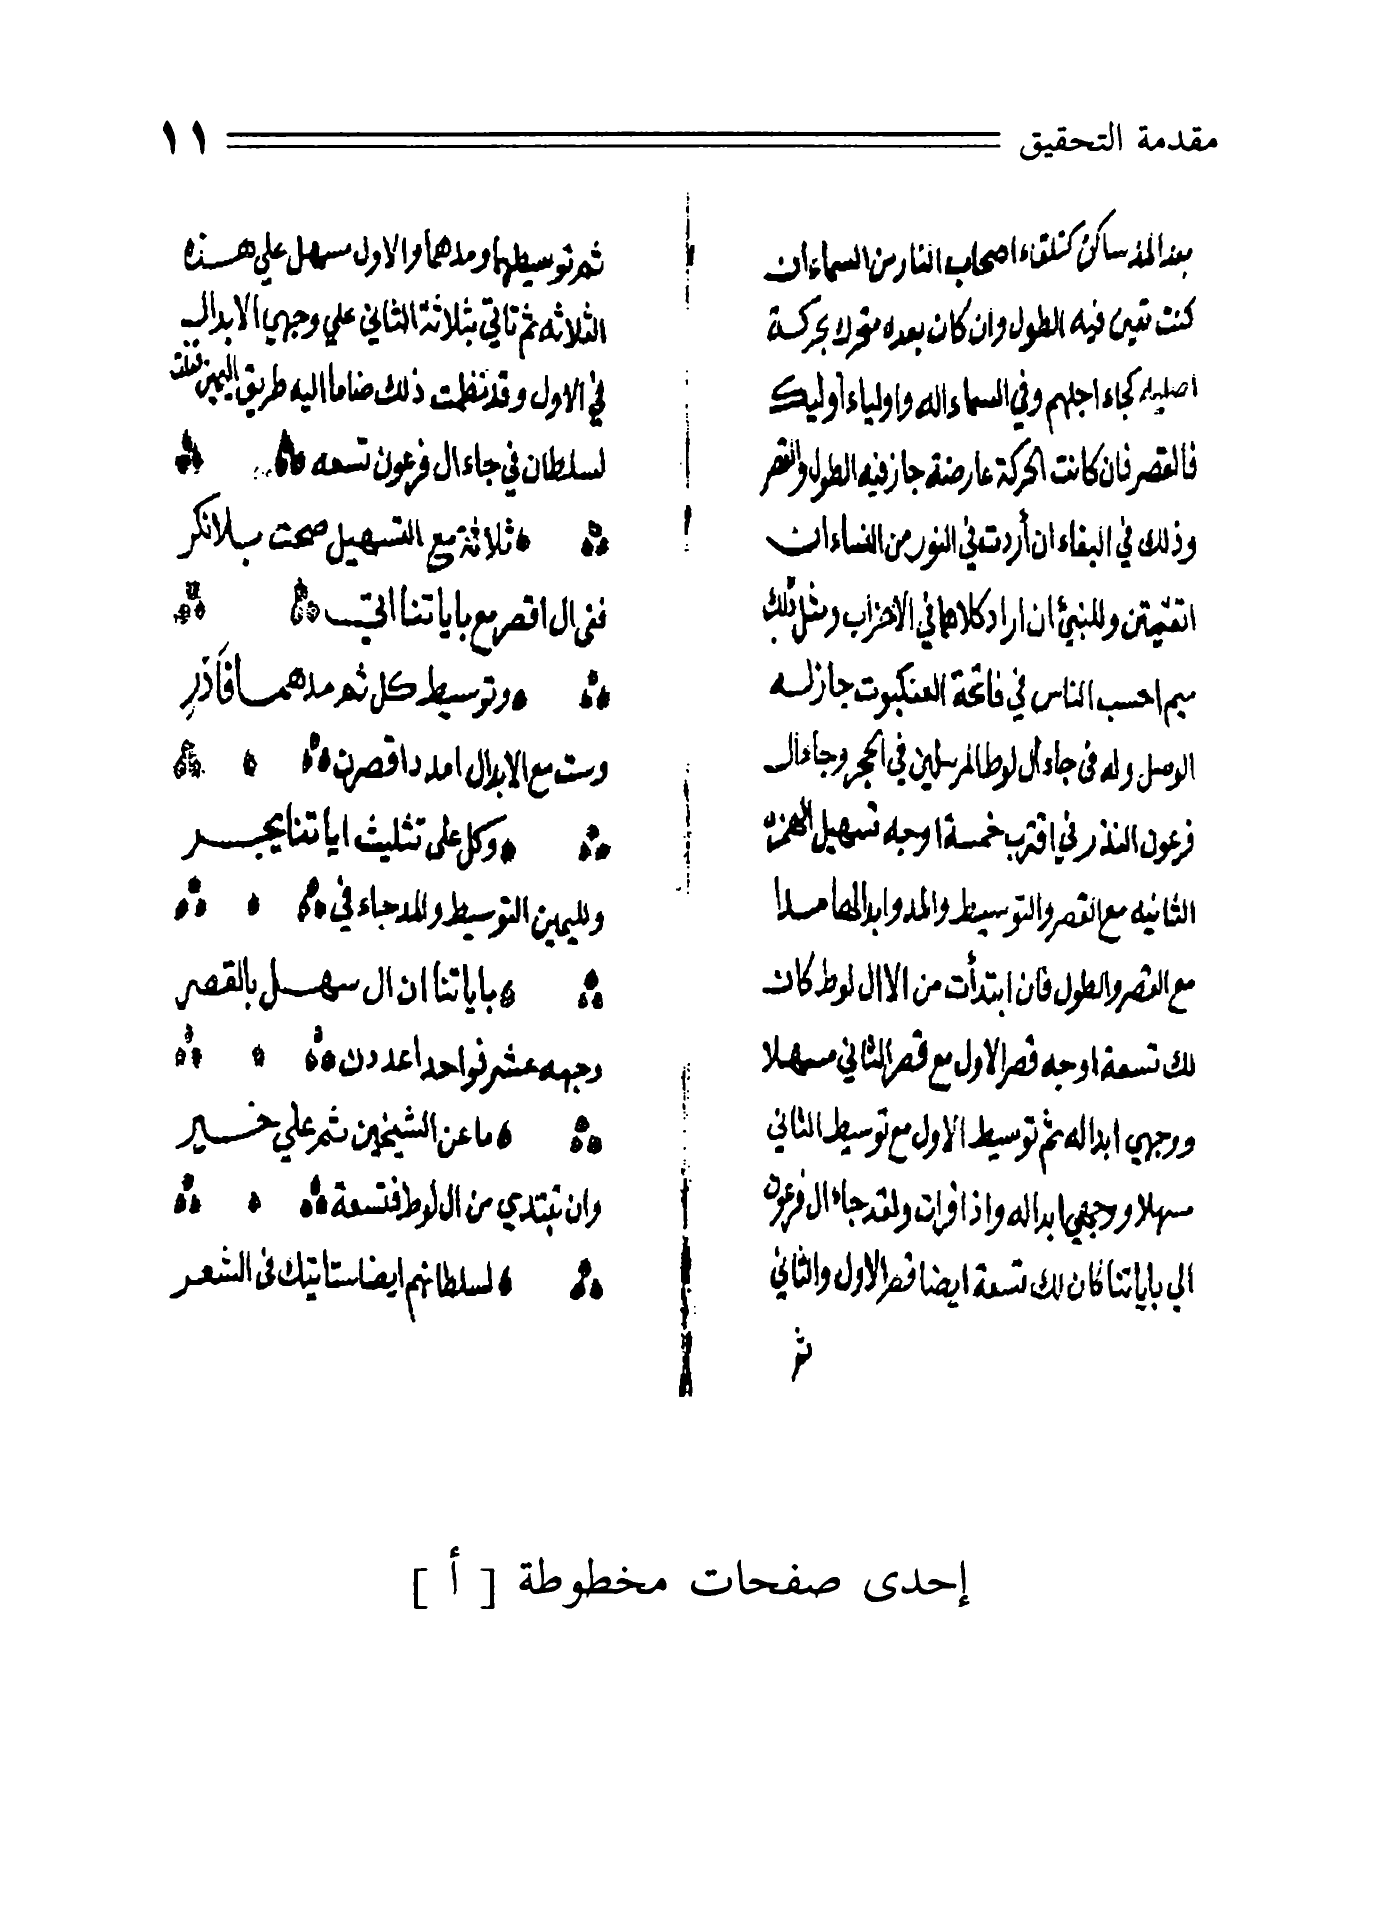 مقدمة التحقيق ١١
بعد المد ساكن كتلقاء اصحاب النار من السماء ان
كنت تعين فيه الطول وان كان بعده متحرك بحركة
اصليه كجاء اجلهم وفي السماء اله واولياء اوليك
فالقصر فان كانت الحركة عارضة جاز فيه الطول والقصر
وذلك في البغاء ان أردت في النور من النساء ان
اتقيتن وللنبئ ان اراد كلاهما في الاحزاب ومثل ذلك
ميم احسب الناس في فاتحة العنكبوت جاز له
الوصل وله في جاء ال لوط المرسلين في الحجر وجاء ال
فرعون النذر في اقترب خمسة اوجه تسهيل الهمزه
الثانيه مع القصر والتوسيط والمد وابدالها مدا
مع القصر والطول فان ابتدأت من الا ال لوط كان
لك تسعة اوجه قصر الاول مع قصر الثاني مسهلا
ووجهي ابداله ثم توسيط الاول مع توسيط الثاني
مسهلا ووجهي ابداله واذا قرات ولقد جاء ال فرعون
الي باياتنا كان لك تسعة ايضا قصر الاول والثاني
ثم
ثم توسيطهما ومدهما والاول مسهل علي هذه
الثلاثه ثم تاتي بثلاثة الثاني علي وجهي الابدال
في الاول وقد نظمت ذلك ضاما اليه طريق اليمين فقلت
لسلطان في جاء ال فرعون تسعه
ثلاثة مع التسهيل صحت بلا نكر
ففي ال اقصر مع باياتنا التي
وتوسيط كل ثم مدهما فادر
وست مع الابدال امدد واقصرن
وكل على تثليث اياتنا يجر
ولليمين التوسيط والمد جاء في
باياتنا ان ال سهل بالقصر
وجهه عشر فواحدا عددن
ما عن الشيخين ثم علي خير
وان تبتدي من ال لوط فتسعة
لسلطانهم ايضا ستاتيك في الشعر
إحدى صفحات مخطوطة [ أ ]